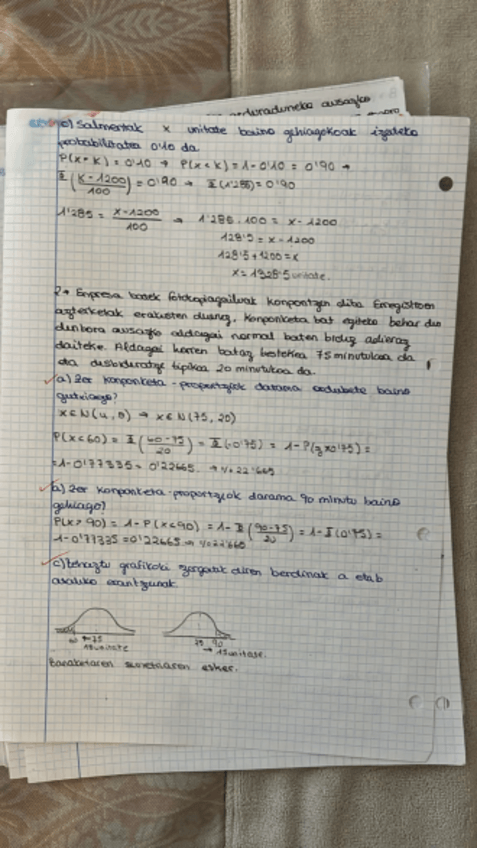 c) Salmentak x unitate baino gehiagokoak izateko
probabilitatea 0'10 da.
P(x > K) = 0'10 → P(x < K) = 1 - 0'10 = 0'90 →
Φ((K - 1200)/100) = 0'90 → Φ(1'285) = 0'90
1'285 = (x - 1200)/100 → 1'285 · 100 = x - 1200
128'5 = x - 1200
128'5 + 1200 = x
x = 1328'5 unitate.
2. Enpresa batek fotokopiagailuak konpontzen ditu. Erregistroen
azterketak erakusten duenez, konponketa bat egiteko behar den
denbora ausazko aldagai normal baten bidez adieraz
daiteke. Aldagai horren batez bestekoa 75 minutukoa da
eta desbideratze tipikoa 20 minutukoa da.
a) Zer konponketa-proportziok darama ordubete baino
gutxiago?
x ∈ N(μ, σ) → x ∈ N(75, 20)
P(x < 60) = Φ((60 - 75)/20) = Φ(-0'75) = 1 - P(z > 0'75) =
= 1 - 0'77335 = 0'22665. → % 22'665
b) Zer konponketa-proportziok darama 90 minutu baino
gehiago?
P(x > 90) = 1 - P(x < 90) = 1 - Φ((90 - 75)/20) = 1 - Φ(0'75) =
1 - 0'77335 = 0'22665 → % 22'660
c) zergatik diren berdinak a eta b
ataleko erantzunak.
60 ← 75
15 unitate
75 90
→ 15 unitate.
Banaketaren simetriaren esker.